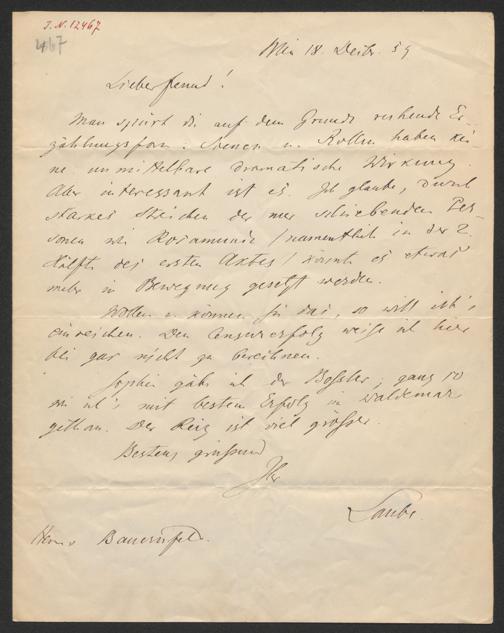 J.N. 12467
467
Wien 18. Decbr. 59
Lieber Freund!
Man spürt die auf dem Grunde ruhende Er-
zählungsform. Scenen u. Rollen haben kei-
ne unmittelbare dramatische Wirkung.
Aber interessant ist es. Ich glaube, durch
starkes Streichen der nur schiebenden Per-
sonen wie Rosamunde /namentlich in der 2.
Hälfte des ersten Aktes/ könnte es etwas
mehr in Bewegung gesetzt werden.
Wollen u. können Sie das, so will ich's
einreichen. Den Censurerfolg weiß ich hier
bei gar nicht zu berechnen.
Sophie gäbe ich der Boßler; ganz so
wie ich's mit bestem Erfolg in Waldemar
gethan. Der Reiz ist viel größer.
Bestens grüßend
Ihr
Laube.
Herrn v. Bauernfeld.